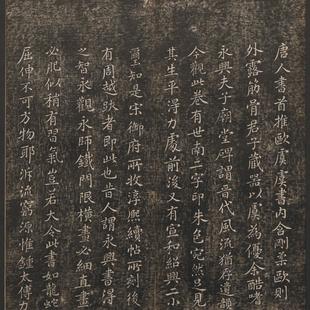 唐人書首推歐虞虞書内含剛柔歐則
外露筋骨君子藏器以虞為優余酷嗜
永興夫子廟堂碑謂晉代風流猶存遺韻
今觀此卷有世南二字印朱色宛然only見
其生平得力處前後又有宣和紹興二小
璽知是宋御府所收淳熙續帖所刻後
有周越跋者即此也昔人謂永興書得
之智永觀永師鐵門限橫畫必細直畫
必肥似稍有習氣豈若大令此書如龍蛇
屈伸不可方物耶泝流窮源惟鍾太傅力